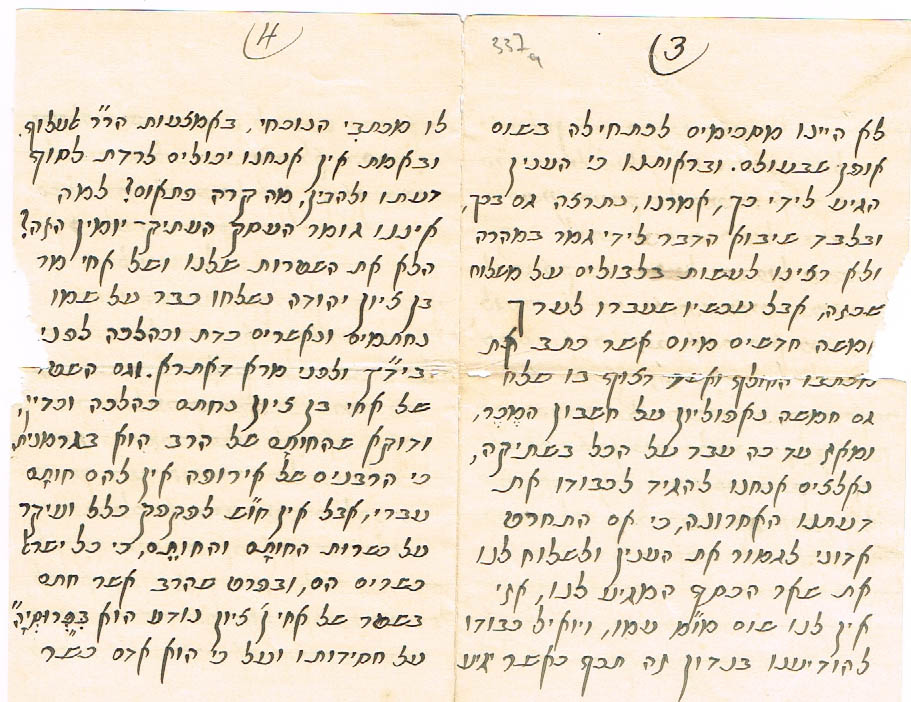 337a
3)
לא היינו מסכימים לכתחילה בשום
אופן שבעולם. ובראותנו כי הענין
הגיע לידי כך, אמרנו, נתרצה גם בכך,
ובלבד שיבוא הדבר לידי גמר במהרה
ולא רצינו לעשות בלבולים על משלוח
שכזה, אבל עכשיו שעברו לערך
חמשה חדשים מיום אשר כתב את
מכתבו ואשר רצוף בו שלח
גם חמשה נאפוליון על חשבון המכר,
ומאז עד כה עבר על הכל בשתיקה,
נאלצים אנחנו להגיד לכבודו את
דעתנו האחרונה, כי אם התחרט
אדוני לגמור את הענין ולשלוח לנו
את שאר הכסף המגיע לנו, אזי
אין לנו שום מו"מ עמו, ויואיל כבודו
להודיענו בנדון זה תכף כאשר יגיע
4)
לו מכתבי הנוכחי, באמצעות הר"ר
ובאמת אין אנחנו יכולים לרדת לסוף
דעתו ולהבין, מה קרה פתאום? למה
איננו גומר העסק העתיק יומין הזה?
הלא את השטרות שלנו ושל אחי מר
בן ציון יהודה נשלחו כבר על שמו
נחתמים ונאשרים כדת וכהלכה לפני
ביד"ץ ולפני מרא דאתרא. וגם השטר
של אחי בן ציון נחתם כהלכה וכדין,
ודוקא שהחותם של הרב הוא בגרמנית
כי הרבנים של אירופה אין להם חותם
עברי, אבל אין חו"ש לפקפק כלל ועיקר
על כשרות החותם והחותם, כי כל ישראל
כשרים הם, ובפרט שהרב אשר חתם
בשטר של אחי ציון נודע הוא
על חסידותו ועל כי הוא אדם כשר